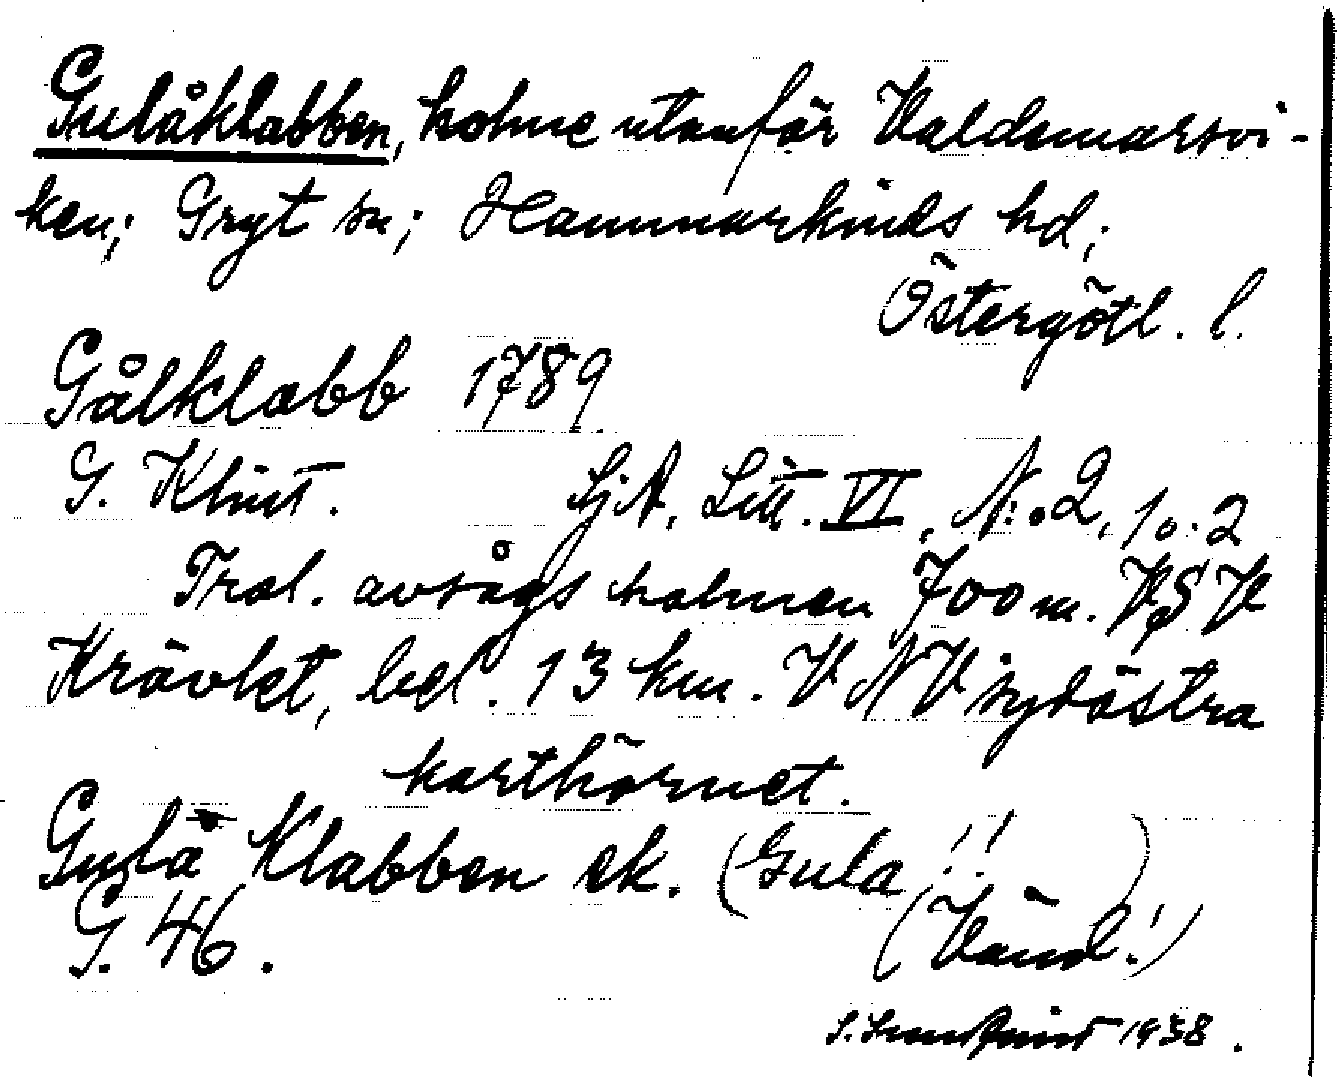 Gulåklabben, holme utanför Valdemarsvi-
ken; Gryt sn; Hammarkinds hd;
Östergötl. l.
Gålklabb 1789
G. Klint. SjA, Litt. VI, N:o 2, 1 o. 2
Trol. avsågs holmen 700 m. VSV
Krävlet, bel. 13 km. VNV sydöstra
karthörnet.
Gula Klabben ek. (Gula !! )
G. 46. (Vänd!)
S. Lundqvist 1938.